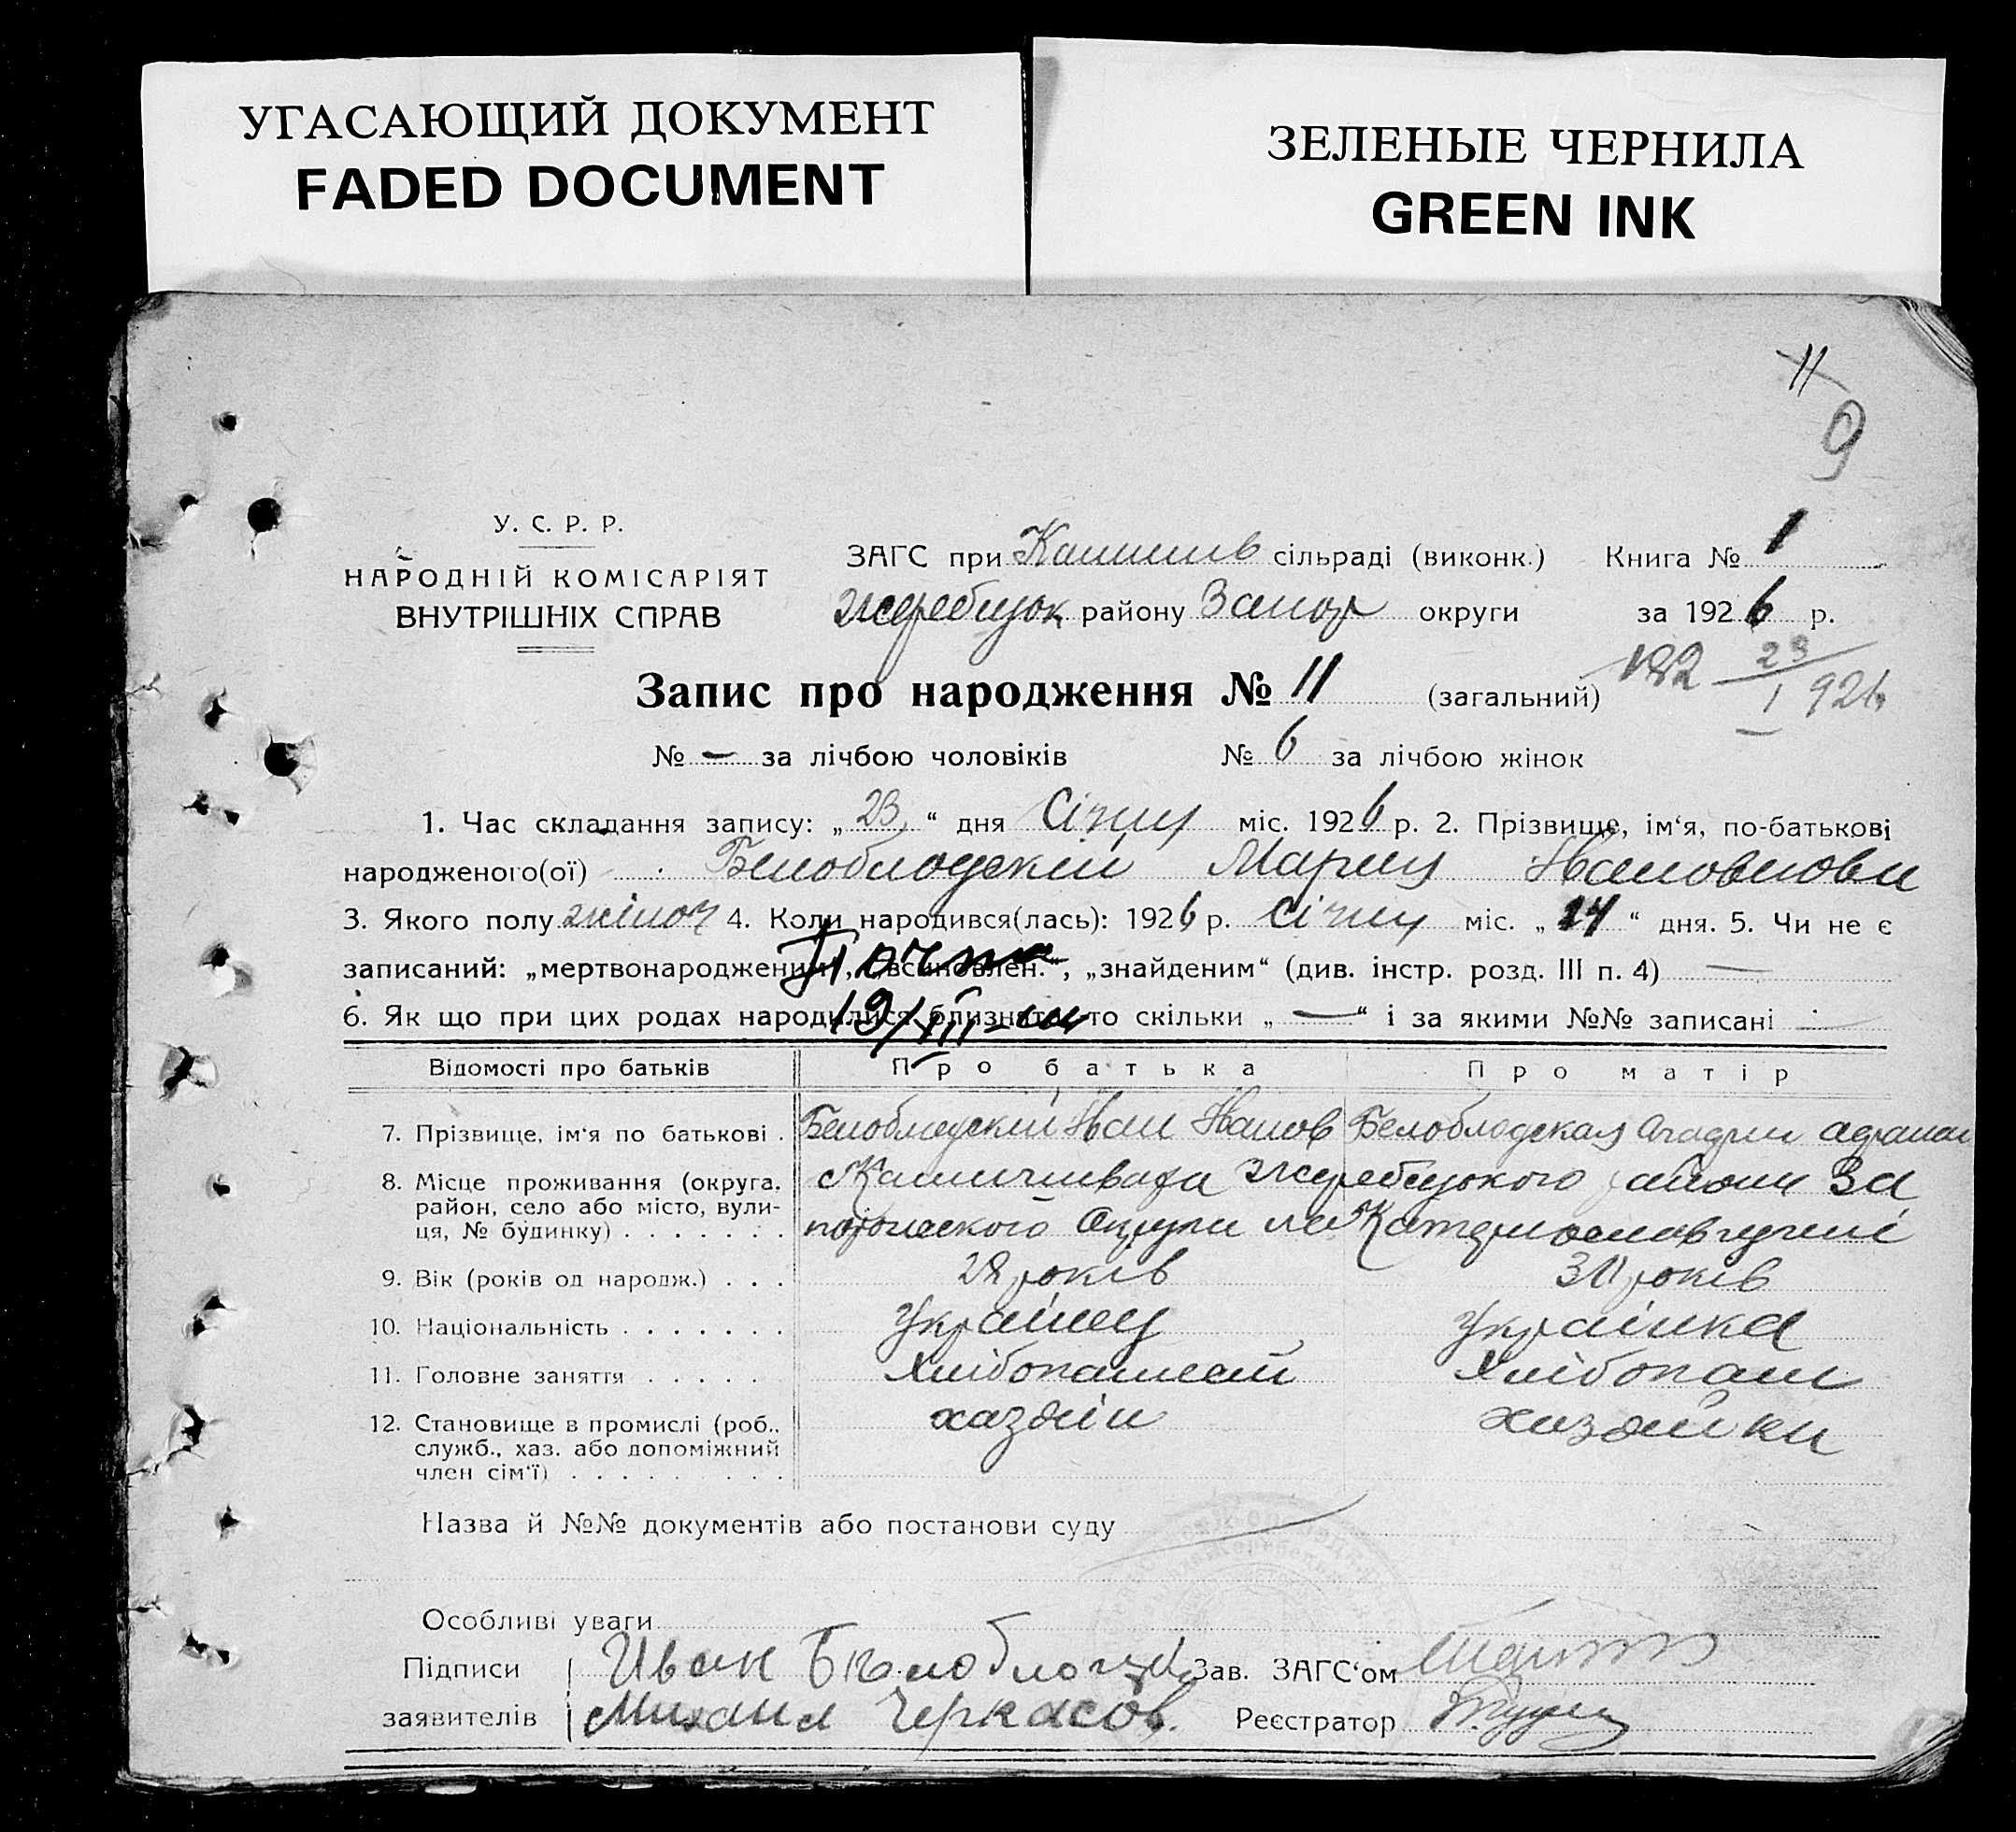 УГАСАЮЩИЙ ДОКУМЕНТ
FADED DOCUMENT
ЗЕЛЕНЫЕ ЧЕРНИЛА
GREEN INK
11
9
У. С. Р. Р.
НАРОДНІЙ КОМІСАРІЯТ
ВНУТРІШНІХ СПРАВ
ЗАГС при сільраді (виконк.) Книга № 1
Жеребецьк району Запор округи за 1926 р.
Запис про народження № 11 (загальний)
182 23/1 926
№ — за лічбою чоловіків № 6 за лічбою жінок
1. Час складання запису: „23“ дня Січня міс. 1926 р. 2. Прізвище, ім‘я, по-батькові
народженого(ої) Белоблодскій Мария Ивановнови
3. Якого полу жіноч 4. Коли народився(лась): 1926 р. Січня міс. „14“ дня. 5. Чи не є
записаний: „мертвонародженим“, „всиновлен.“, „знайденим“ (див. інстр. розд. III п. 4) —
6. Як що при цих родах народилися близнята, то скільки „—“ і за якими №№ записані —
19/III
Відомості про батьків Про батька Про матір
7. Прізвище, ім‘я по батькові . Белоблодскій Иван Иванов Белоблодская
8. Місце проживання (округа, Жеребецького району За
район, село або місто, вули-
ця, № будинку) . . . . . . . порожского Округи
9. Вік (років од народж.) . . . 28 років 30 років
10. Національність . . . . . . . Українец Українка
11. Головне заняття . . . . . Хлібопашест Хлібопаш
12. Становище в промислі (роб., хазяін хазяйки
служб., хаз. або допоміжний
член сім‘ї) . . . . . . . . .
Назва й №№ документів або постанови суду
Особливі уваги
Підписи Иван Зав. ЗАГС‘ом
заявителів Михаил Черкасов. Реєстратор